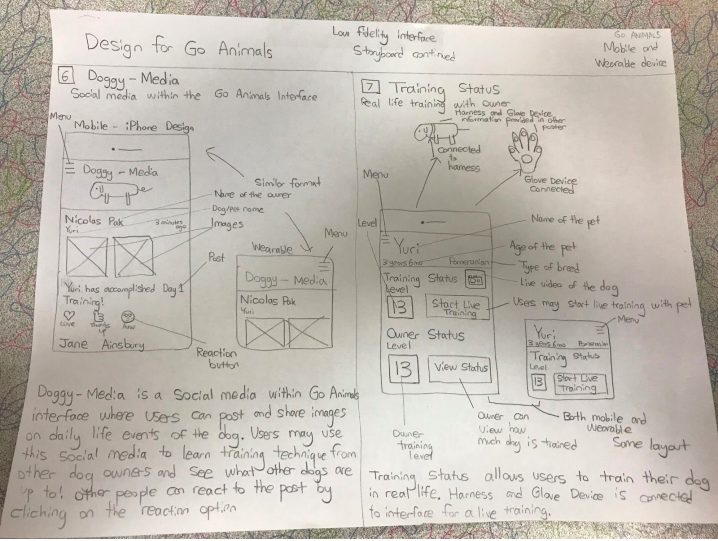 Design for Go Animals
Low fidelity interface
Storyboard continued
GO ANIMALS
Mobile and
Wearable device
6 Doggy - Media
Social media within the Go Animals Interface
Menu
Mobile - iPhone Design
Doggy - Media
Similar format
Name of the owner
Dog/pet name
Nicolas Pak
Yuri
3 minutes
ago
Images
Post
Wearable
Menu
Doggy - Media
Nicolas Pak
Yuri
Yuri has accomplished Day 1
Training!
Love
thumbs
up
Aww
Jane Ainsbury
Reaction
button
Doggy - Media is a social media within Go Animals
interface where users can post and share images
on daily life events of the dog. Users may use
this social media to learn training technique from
other dog owners and see what other dogs are
up to! other people can react to the post by
cliching on the reaction option
7 Training Status
Real life training with owner
Harness and Glove Device
information provided in other
poster
Connected
to
harness
Glove Device
Connected
Menu
Level
Yuri
3 years 6mo
Pomeranian
Name of the pet
Age of the pet
Type of breed
Live video of the dog
Training Status
Level
13
Start Live
Training
Users may start live training with pet
Owner Status
Level
13
View Status
Menu
Yuri
3 years 6mo
Pomeranian
Training Status
Level
13
Start Live
Training
Owner
training
level
Owner can
view how
much dog is trained
Both mobile and
wearable
Same layout
Training Status allows users to train their dog
in real life. Harness and Glove Device is connected
to interface for a live training.